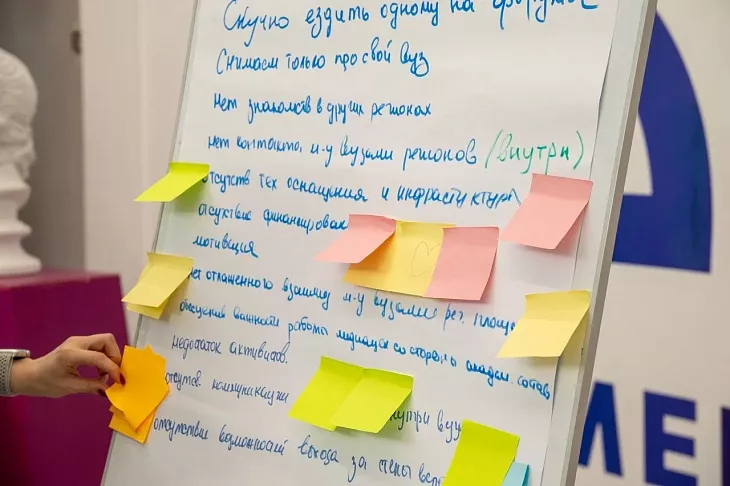 Скучно ездить одному на форумы
Снимаем только про свой вуз
Нет знакомств в других регионах
нет контакта м-у вузами регионов (внутри)
отсутств тех оснащения и инфраструктуры
отсутствие финансирован
мотивация
нет отлаженного взаимод м-у вузами рег. площ
работы медиацентра со стороны академ. состав
недостаток активистов.
отсутсв. коммуникации
внутри вуз
отсутствие возможностей выхода за стены
МЕ